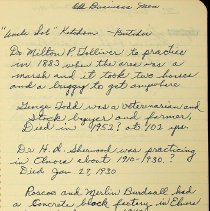 Old Business Men
"Uncle Sol" Ketchem - Butcher
Dr Milton P Tolliver to practice
in 1883 when the area was a
marsh and it took two horses
and a buggy to get anywhere
George Todd was a veternarian and
Stock buyer and farmer,
Died in 1952? at 102 yrs.
Dr H. d. Sherwood was practicing
in Elnora about 1910-1930. ?
Died Jan 27, 1930
Roscoe and Merlin Burdsall had
a Concrete block factory in Elnora